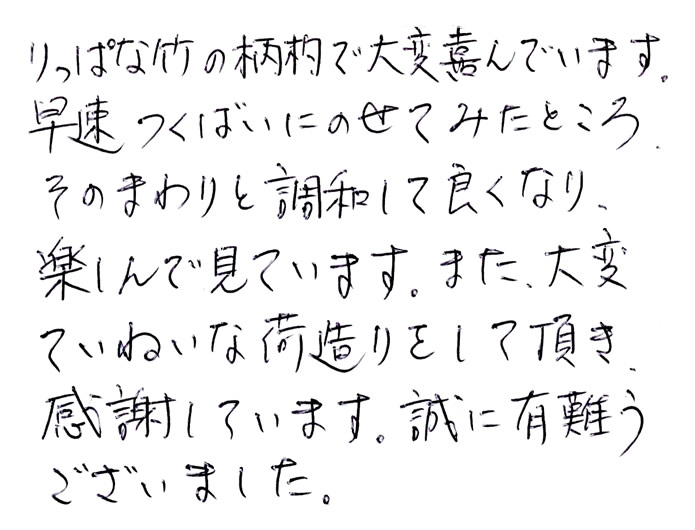 りっぱな竹の柄杓で大変喜んでいます。
早速つくばいにのせてみたところ、
そのまわりと調和して良くなり、
楽しんで見ています。また、大変
ていねいな荷造りをして頂き、
感謝しています。誠に有難う
ございました。